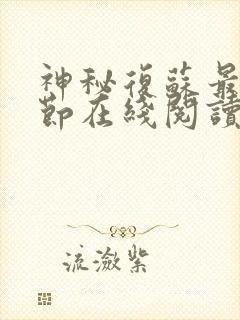 神秘復蘇最
節在綫閱讀
流瀲紫